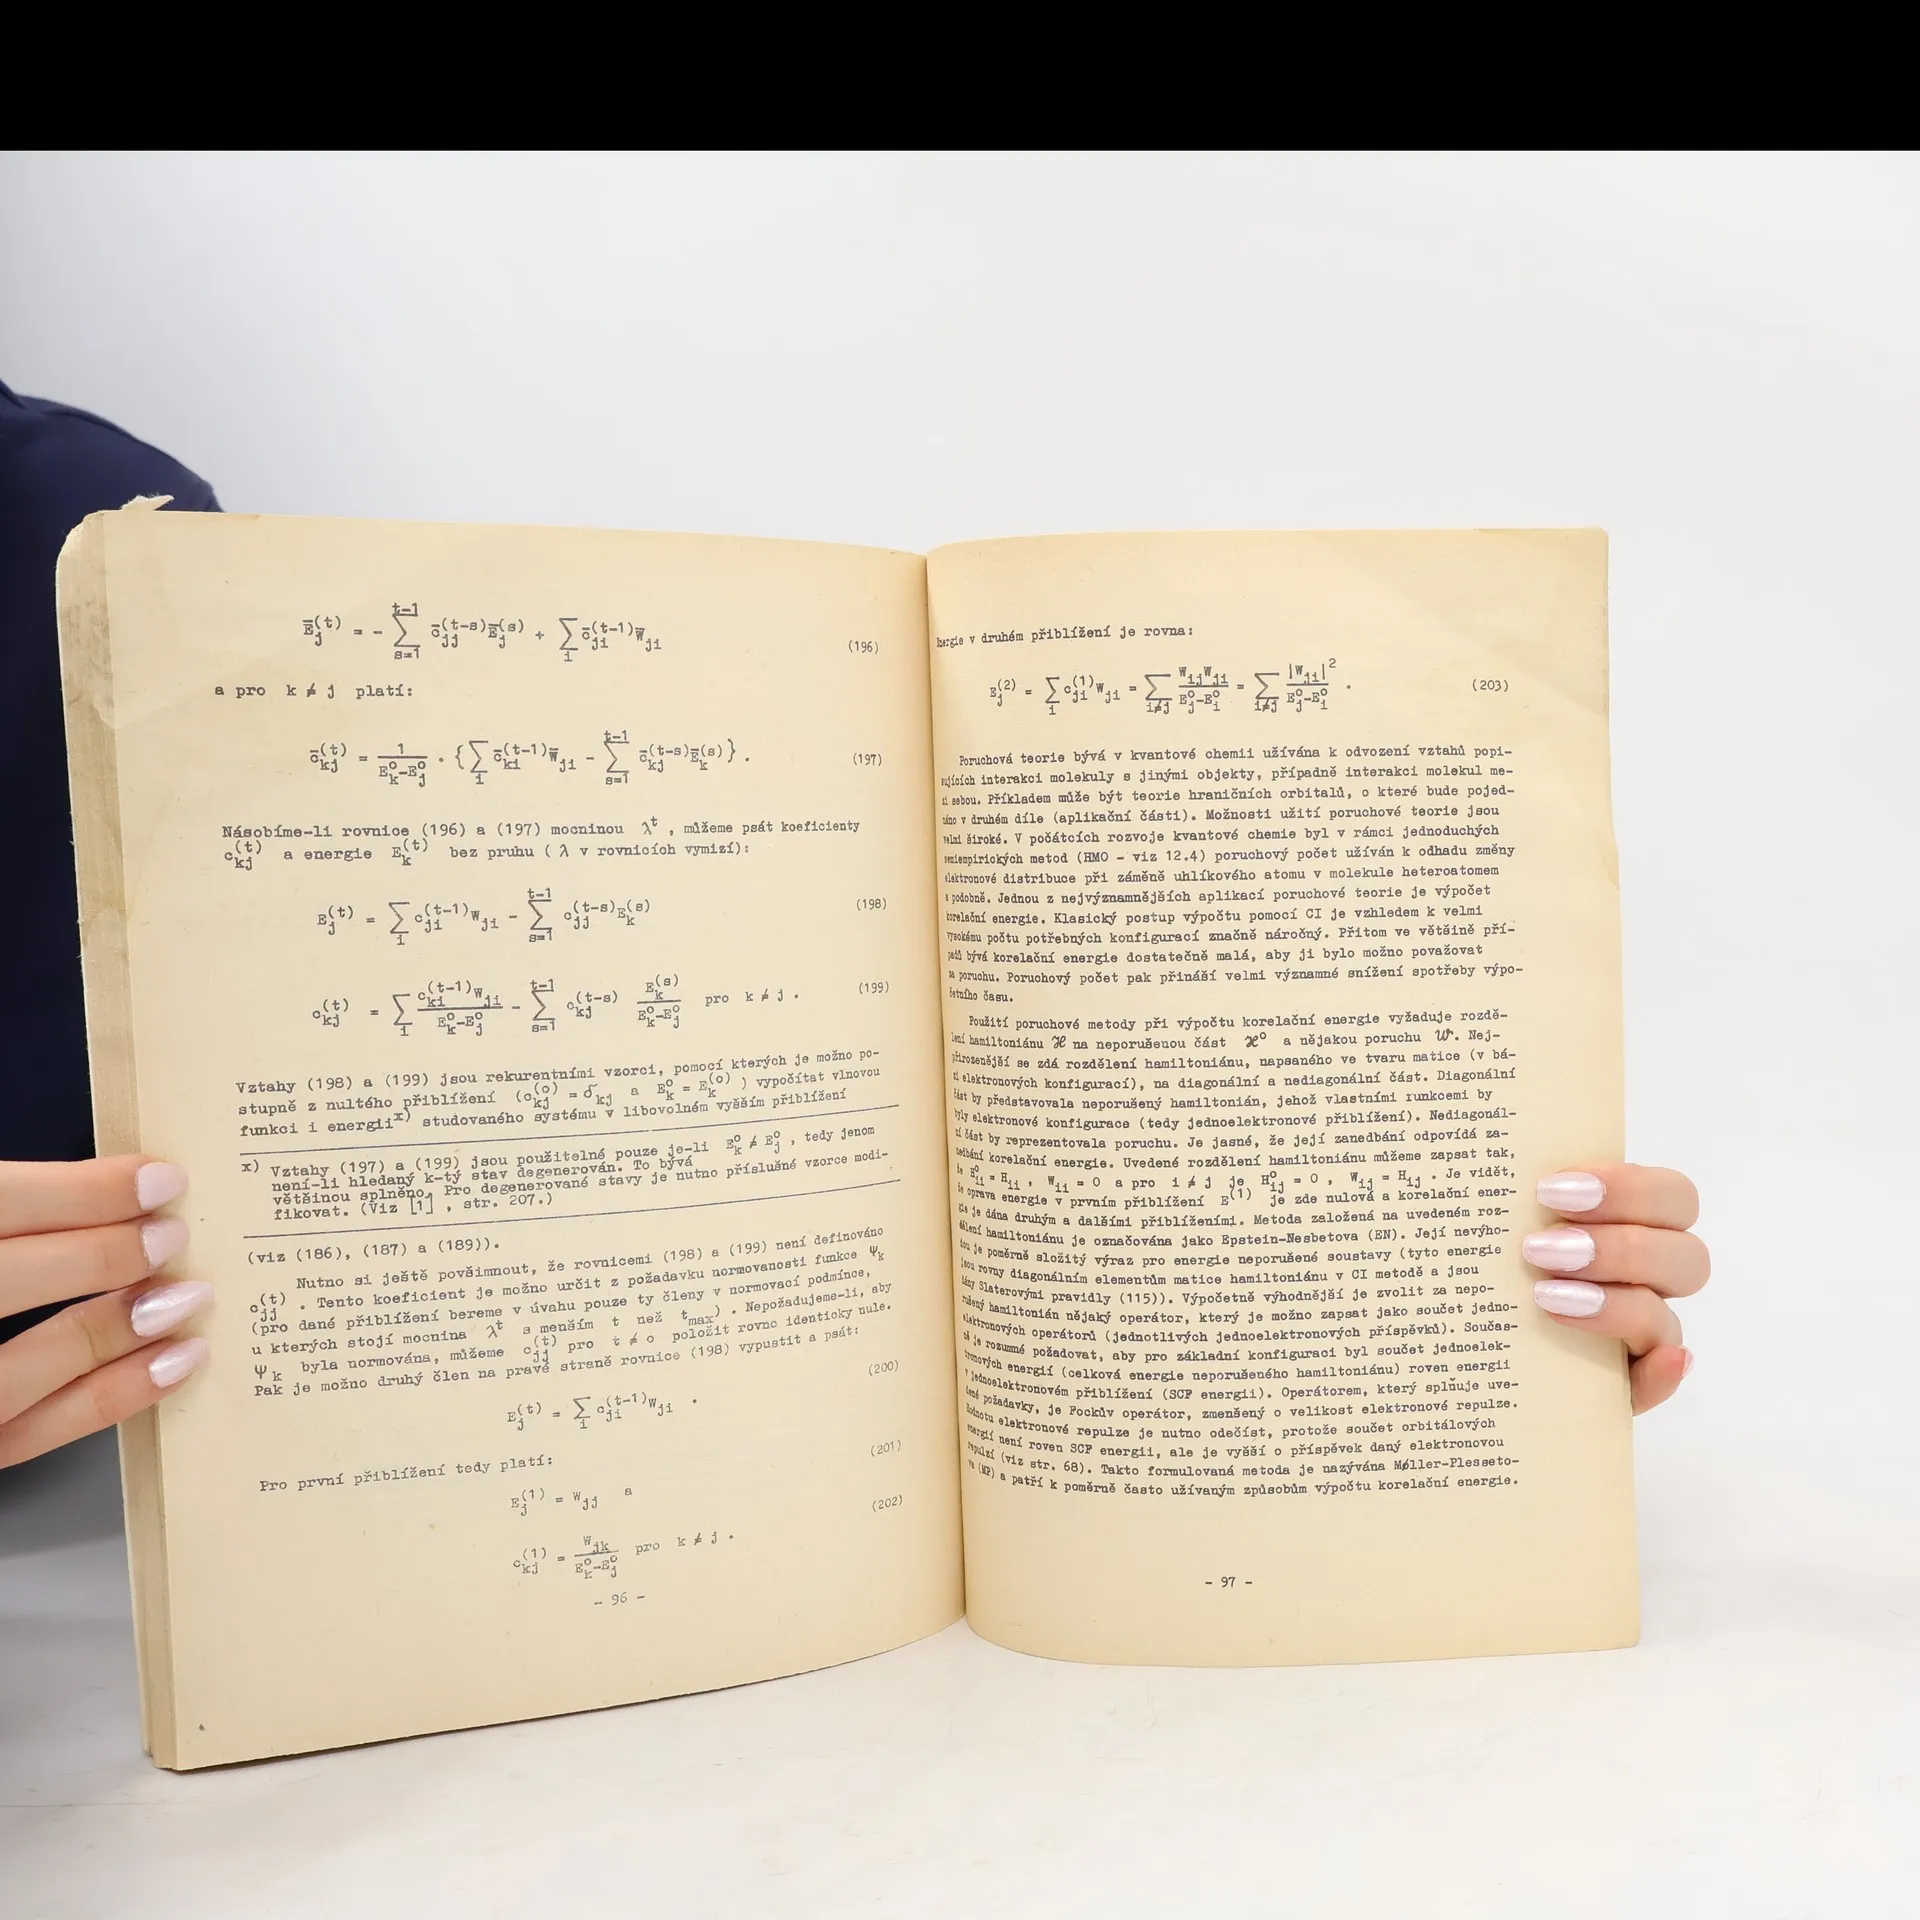 Ē_j^(t) = - Σ_{s=1}^{t-1} c̄_jj^(t-s) Ē_j^(s) + Σ_i c̄_ji^(t-1) W̄_ji (196)
a pro k ≠ j platí:
c̄_kj^(t) = 1/(E_k^o-E_j^o) . { Σ_i c̄_ki^(t-1) W̄_ji - Σ_{s=1}^{t-1} c̄_kj^(t-s) Ē_k^(s) } . (197)
Násobíme-li rovnice (196) a (197) mocninou λ^t , můžeme psát koeficienty
c_kj^(t) a energie E_k^(t) bez pruhu ( λ v rovnicích vymizí):
E_j^(t) = Σ_i c_ji^(t-1) W_ji - Σ_{s=1}^{t-1} c_jj^(t-s) E_k^(s) (198)
c_kj^(t) = Σ_i c_ki^(t-1) W_ji/(E_k^o-E_j^o) - Σ_{s=1}^{t-1} c_kj^(t-s) E_k^(s)/(E_k^o-E_j^o) pro k ≠ j . (199)
Vztahy (198) a (199) jsou rekurentními vzorci, pomocí kterých je možno po-
stupně z nultého přiblížení (c_kj^(o) = δ_kj a E_k^o = E_k^(o) ) vypočítat vlnovou
funkci i energii^x) studovaného systému v libovolném vyšším přiblížení
x) Vztahy (197) a (199) jsou použitelné pouze je-li E_k^o ≠ E_j^o , tedy jenom
není-li hledaný k-tý stav degenerován. To bývá
většinou splněno. Pro degenerované stavy je nutno příslušné vzorce modi-
fikovat. (Viz [1] , str. 207.)
(viz (186), (187) a (189)).
Nutno si ještě povšimnout, že rovnicemi (198) a (199) není definováno
c_jj^(t) . Tento koeficient je možno určit z požadavku normovanosti funkce Ψ_k
(pro dané přiblížení bereme v úvahu pouze ty členy v normovací podmínce,
u kterých stojí mocnina λ^t s menším t než t_max) . Nepožadujeme-li, aby
Ψ_k byla normována, můžeme c_jj^(t) pro t ≠ o položit rovno identicky nule.
Pak je možno druhý člen na pravé straně rovnice (198) vypustit a psát:
E_j^(t) = Σ_i c_ji^(t-1) W_ji . (200)
Pro první přiblížení tedy platí:
E_j^(1) = W_jj a (201)
c_kj^(1) = W_jk/(E_k^o-E_j^o) pro k ≠ j . (202)
- 96 -
v druhém přiblížení je rovna:
E_j^(2) = Σ_i c_ji^(1) W_ji = Σ_{i≠j} W_ij W_ji/(E_j^o-E_i^o) = Σ_{i≠j} |W_ji|^2/(E_j^o-E_i^o) . (203)
Poruchová teorie bývá v kvantové chemii užívána k odvození vztahů popi-
sujících interakci molekuly s jinými objekty, případně interakci molekul me-
zi sebou. Příkladem může být teorie hraničních orbitalů, o které bude pojed-
náno v druhém díle (aplikační části). Možnosti užití poruchové teorie jsou
velmi široké. V počátcích rozvoje kvantové chemie byl v rámci jednoduchých
semiempirických metod (HMO - viz 12.4) poruchový počet užíván k odhadu změny
elektronové distribuce při záměně uhlíkového atomu v molekule heteroatomem
a podobně. Jednou z nejvýznamnějších aplikací poruchové teorie je výpočet
korelační energie. Klasický postup výpočtu pomocí CI je vzhledem k velmi
vysokému počtu potřebných konfigurací značně náročný. Přitom ve většině pří-
padů bývá korelační energie dostatečně malá, aby ji bylo možno považovat
za poruchu. Poruchový počet pak přináší velmi významné snížení spotřeby výpo-
četního času.
Použití poruchové metody při výpočtu korelační energie vyžaduje rozdě-
lení hamiltoniánu ℋ na neporušenou část ℋ^o a nějakou poruchu 𝒲. Nej-
přirozenější se zdá rozdělení hamiltoniánu, napsaného ve tvaru matice (v bá-
zi elektronových konfigurací), na diagonální a nediagonální část. Diagonální
část by představovala neporušený hamiltonián, jehož vlastními funkcemi by
byly elektronové konfigurace (tedy jednoelektronové přiblížení). Nediagonál-
ní část by reprezentovala poruchu. Je jasné, že její zanedbání odpovídá za-
nedbání korelační energie. Uvedené rozdělení hamiltoniánu můžeme zapsat tak,
že H_ii^o = H_ii , W_ii = 0 a pro i ≠ j je H_ij^o = 0 , W_ij = H_ij . Je vidět,
že oprava energie v prvním přiblížení E^(1) je zde nulová a korelační ener-
gie je dána druhým a dalšími přiblíženími. Metoda založená na uvedeném roz-
dělení hamiltoniánu je označována jako Epstein-Nesbetova (EN). Její nevýho-
dou je poměrně složitý výraz pro energie neporušené soustavy (tyto energie
jsou rovny diagonálním elementům matice hamiltoniánu v CI metodě a jsou
dány Slaterovými pravidly (115)). Výpočetně výhodnější je zvolit za nepo-
rušený hamiltonián nějaký operátor, který je možno zapsat jako součet jedno-
elektronových operátorů (jednotlivých jednoelektronových příspěvků). Součas-
ně je rozumné požadovat, aby pro základní konfiguraci byl součet jednoelek-
tronových energií (celková energie neporušeného hamiltoniánu) roven energii
v jednoelektronovém přiblížení (SCF energii). Operátorem, který splňuje uve-
dené požadavky, je Fockův operátor, zmenšený o velikost elektronové repulze.
Hodnotu elektronové repulze je nutno odečíst, protože součet orbitálových
energií není roven SCF energii, ale je vyšší o příspěvek daný elektronovou
repulzí (viz str. 68). Takto formulovaná metoda je nazývána Møller-Plesseto-
va (MP) a patří k poměrně často užívaným způsobům výpočtu korelační energie.
- 97 -